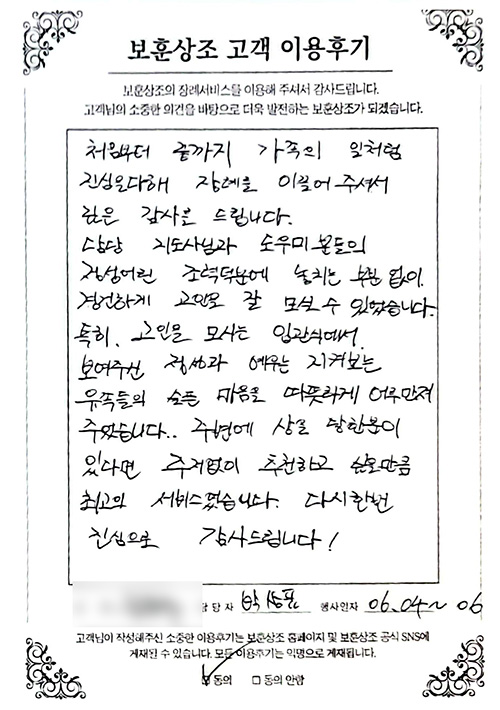 보훈상조 고객 이용후기
보훈상조의 장례서비스를 이용해 주셔서 감사드립니다.
고객님의 소중한 의견을 바탕으로 더욱 발전하는 보훈상조가 되겠습니다.
처음부터 끝까지 가족의 일처럼
진심을다해 장례를 이끌어주셔서
깊은 감사를 드립니다.
담당 지도사님과 도우미분들의
정성어린 조력덕분에 놓치는 부분 없이.
경건하게 고인을 잘 모실수 있었습니다.
특히, 고인을 모시는 입관식에서
보여주신 정성과 예우는 지켜보는
유족들의 슬픈 마음을 따뜻하게 어루만져
주었습니다.. 주변에 상을 당한분이
있다면 주저없이 추천하고 싶을만큼
최고의 서비스였습니다. 다시한번
진심으로 감사드립니다!
담당자 행사일자 06.04~06
고객님이 작성해주신 소중한 이용후기는 보훈상조 홈페이지 및 보훈상조 공식 SNS에
게재될 수 있습니다. 모든 이용후기는 익명으로 게재됩니다.
동의 □ 동의 안함